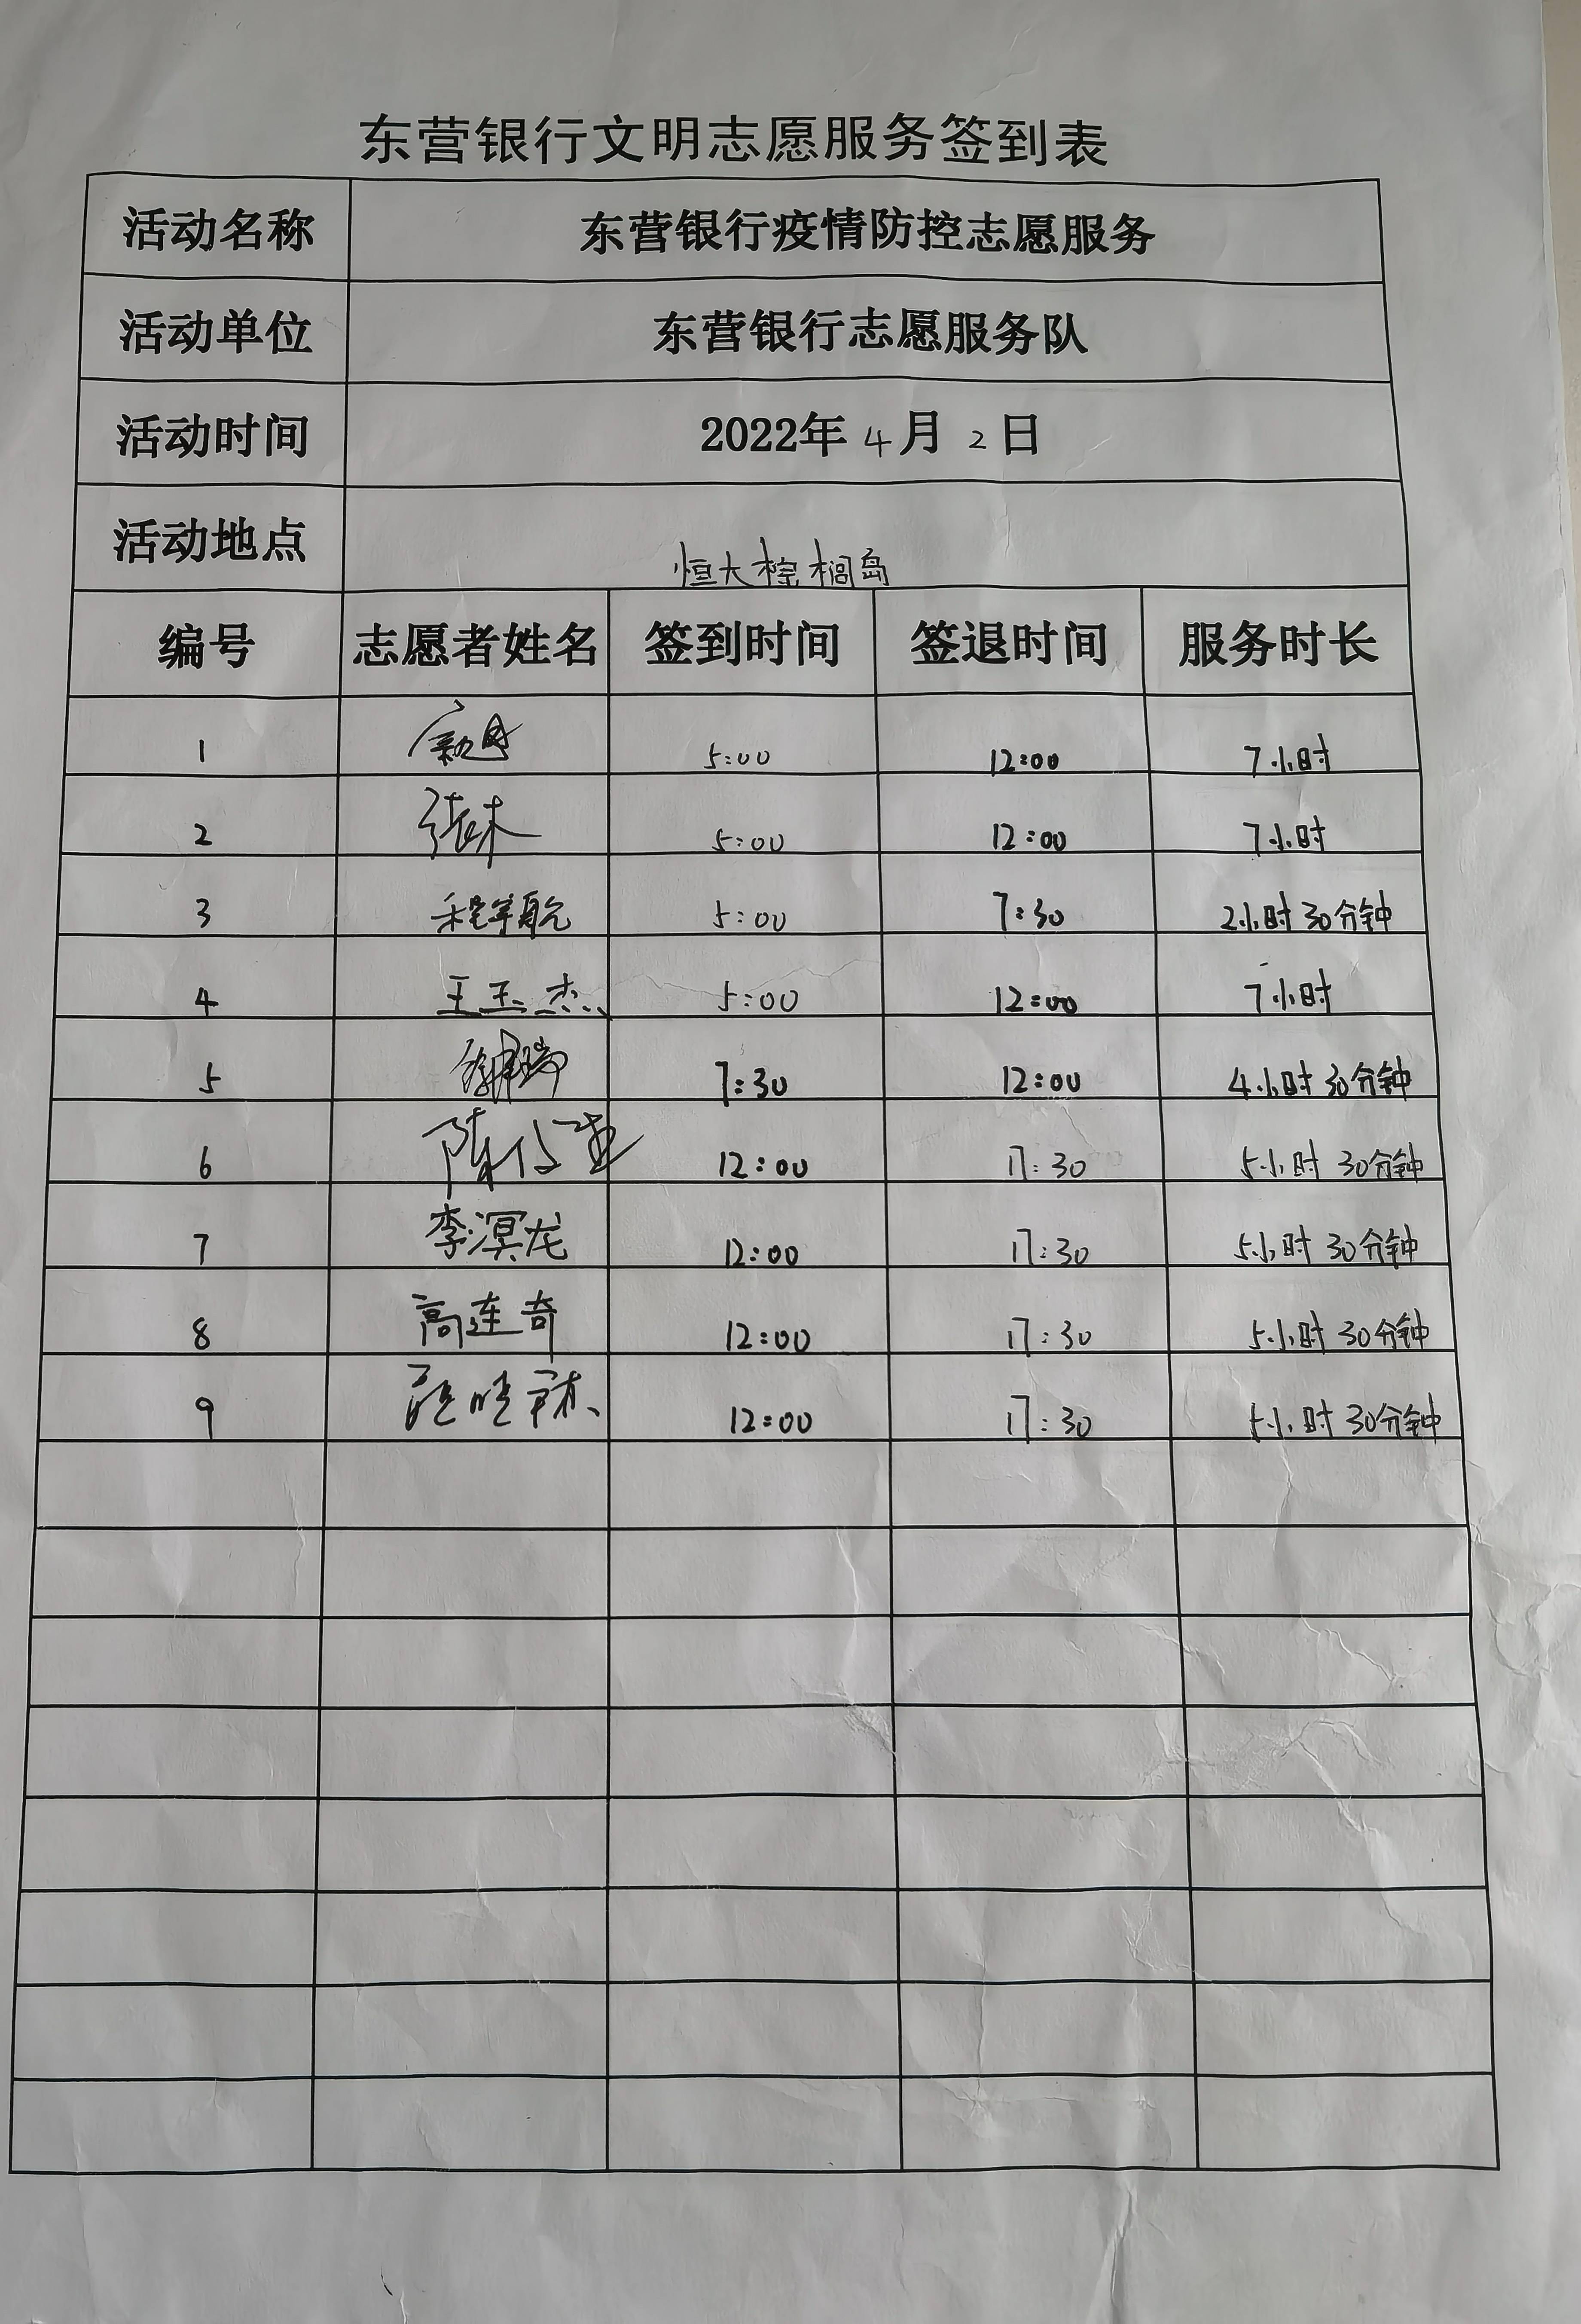 东营银行文明志愿服务签到表
活动名称 东营银行疫情防控志愿服务
活动单位 东营银行志愿服务队
活动时间 2022年 4 月 2 日
活动地点 恒大棕榈岛
编号 志愿者姓名 签到时间 签退时间 服务时长
1 5:00 12:00 7小时
2 张林 5:00 12:00 7小时
3 程宇航 5:00 7:30 2小时30分钟
4 王玉杰 5:00 12:00 7小时
5 7:30 12:00 4小时30分钟
6 12:00 17:30 5小时30分钟
7 李溟龙 12:00 17:30 5小时30分钟
8 高连奇 12:00 17:30 5小时30分钟
9 12:00 17:30 5小时30分钟